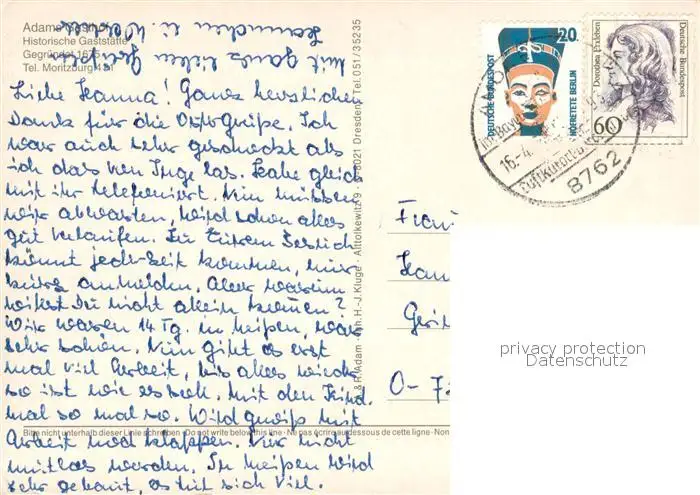 Adams Gasthof
Historische Gaststätte
Gegründet 1675
Tel. Moritzburg 431
Mit ganz lieben Grüßen
Hannchen u. Werner
Liebe Hanna! Ganz herzlichen
Dank für die Ostergrüße. Ich
war auch sehr geschockt als
ich das von Inge las. Habe gleich
mit ihr telefoniert. Nun müssen
wir abwarten, wird schon alles
gut verlaufen. Zu Eurem Besuch
könnt jederzeit kommen, nur
kurz anmelden. Aber warum
willst Du nicht allein kommen?
Wir waren 14 Tg. in Meißen, war
sehr schön. Nun gibt es erst
mal viel Arbeit, bis alles wieder
so ist wie es soll. Mit den Kind.
mal so mal so. Wird gewiß mit
Arbeit noch klappen. Nur nicht
mutlos werden. In Meißen wird
sehr gebaut, es tut sich viel.
Bitte nicht unterhalb dieser Linie schreiben · Do not write below this line · Ne pas écrire au-dessous de cette ligne · Non
& R. Adam · Inh. H.-J. Kluge · Alttolkewitz 9 · O-8021 Dresden · Tel. 051/35235
DEUTSCHE BUNDESPOST
20
NOFRETETE BERLIN
Dorothea Erxleben
Deutsche Bundespost
60
16.-4.
Luftkurort
8762
Frau
Han
Geri
O-7
privacy protection
Datenschutz